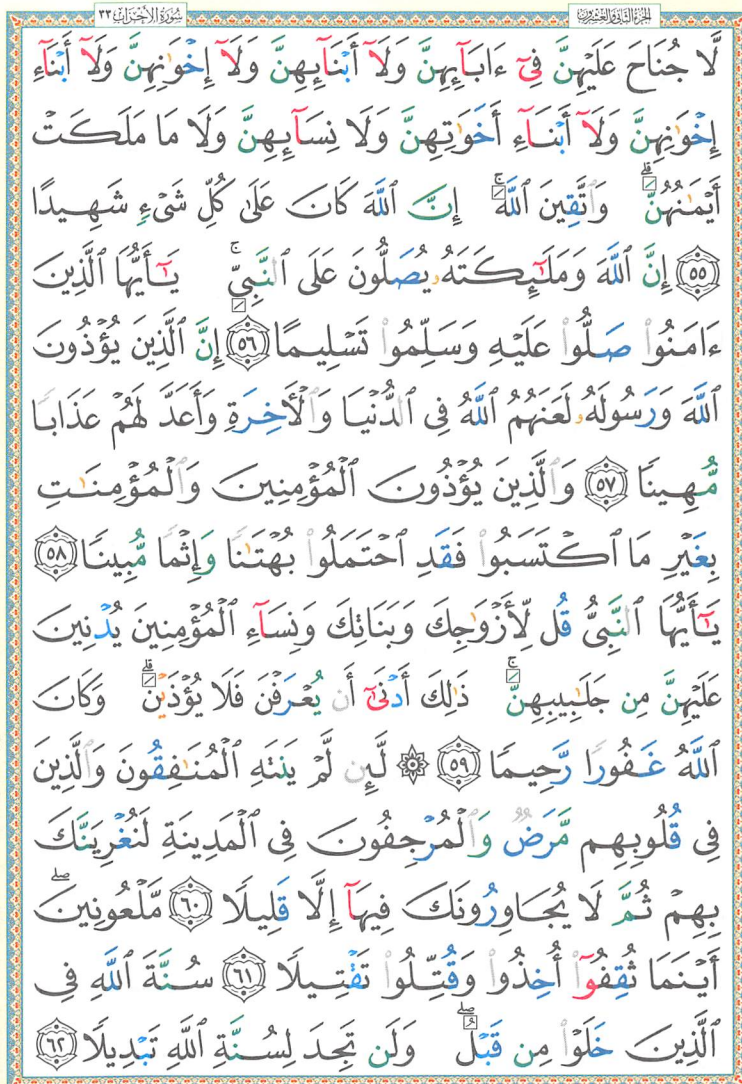 الجزء الثاني والعشرون
سُورَةُ الأَحْزَابِ ٣٣
لَّا جُنَاحَ عَلَيْهِنَّ فِىٓ ءَابَآئِهِنَّ وَلَآ أَبْنَآئِهِنَّ وَلَآ إِخْوَٰنِهِنَّ وَلَآ أَبْنَآءِ
إِخْوَٰنِهِنَّ وَلَآ أَبْنَآءِ أَخَوَٰتِهِنَّ وَلَا نِسَآئِهِنَّ وَلَا مَا مَلَكَتْ
أَيْمَٰنُهُنَّ ۗ وَٱتَّقِينَ ٱللَّهَ ۚ إِنَّ ٱللَّهَ كَانَ عَلَىٰ كُلِّ شَىْءٍ شَهِيدًا
٥٥ إِنَّ ٱللَّهَ وَمَلَٰٓئِكَتَهُۥ يُصَلُّونَ عَلَى ٱلنَّبِىِّ ۚ يَٰٓأَيُّهَا ٱلَّذِينَ
ءَامَنُوا۟ صَلُّوا۟ عَلَيْهِ وَسَلِّمُوا۟ تَسْلِيمًا ٥٦ إِنَّ ٱلَّذِينَ يُؤْذُونَ
ٱللَّهَ وَرَسُولَهُۥ لَعَنَهُمُ ٱللَّهُ فِى ٱلدُّنْيَا وَٱلْـَٔاخِرَةِ وَأَعَدَّ لَهُمْ عَذَابًا
مُّهِينًا ٥٧ وَٱلَّذِينَ يُؤْذُونَ ٱلْمُؤْمِنِينَ وَٱلْمُؤْمِنَٰتِ
بِغَيْرِ مَا ٱكْتَسَبُوا۟ فَقَدِ ٱحْتَمَلُوا۟ بُهْتَٰنًا وَإِثْمًا مُّبِينًا ٥٨
يَٰٓأَيُّهَا ٱلنَّبِىُّ قُل لِّأَزْوَٰجِكَ وَبَنَاتِكَ وَنِسَآءِ ٱلْمُؤْمِنِينَ يُدْنِينَ
عَلَيْهِنَّ مِن جَلَٰبِيبِهِنَّ ۚ ذَٰلِكَ أَدْنَىٰٓ أَن يُعْرَفْنَ فَلَا يُؤْذَيْنَ ۗ وَكَانَ
ٱللَّهُ غَفُورًا رَّحِيمًا ٥٩ ۞ لَّئِن لَّمْ يَنتَهِ ٱلْمُنَٰفِقُونَ وَٱلَّذِينَ
فِى قُلُوبِهِم مَّرَضٌ وَٱلْمُرْجِفُونَ فِى ٱلْمَدِينَةِ لَنُغْرِيَنَّكَ
بِهِمْ ثُمَّ لَا يُجَاوِرُونَكَ فِيهَآ إِلَّا قَلِيلًا ٦٠ مَّلْعُونِينَ ۖ
أَيْنَمَا ثُقِفُوٓا۟ أُخِذُوا۟ وَقُتِّلُوا۟ تَقْتِيلًا ٦١ سُنَّةَ ٱللَّهِ فِى
ٱلَّذِينَ خَلَوْا۟ مِن قَبْلُ ۖ وَلَن تَجِدَ لِسُنَّةِ ٱللَّهِ تَبْدِيلًا ٦٢